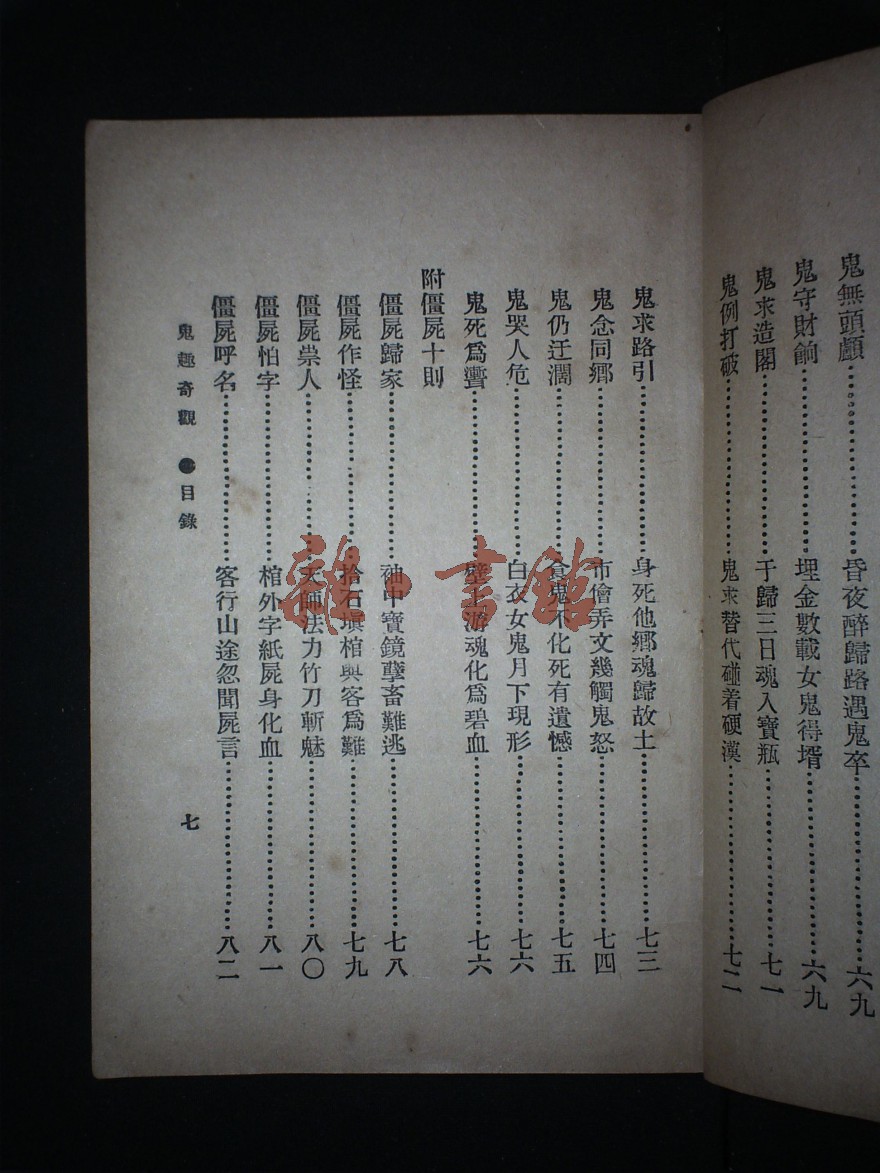 鬼無頭顱……昏夜醉歸路遇鬼卒……六九
鬼守財餉……埋金數載女鬼得壻……六九
鬼求造閣……于歸三日魂入寶瓶……七一
鬼例打破……鬼求替代碰着硬漢……七二
鬼求路引……身死他鄉魂歸故土……七三
鬼念同鄉……市儈弄文幾觸鬼怒……七四
鬼仍迂濶……貪鬼不化死有遺憾……七五
鬼哭人危……白衣女鬼月下現形……七六
鬼死爲魙……壁上游魂化爲碧血……七六
附僵屍十則
僵屍歸家……袖中寶鏡孽畜難逃……七八
僵屍作怪……拾石塡棺與客爲難……七九
僵屍祟人……天師法力竹刀斬魅……八〇
僵屍怕字……棺外字紙屍身化血……八一
僵屍呼名……客行山途忽聞屍言……八二
鬼趣奇觀 ●目錄 七
書館